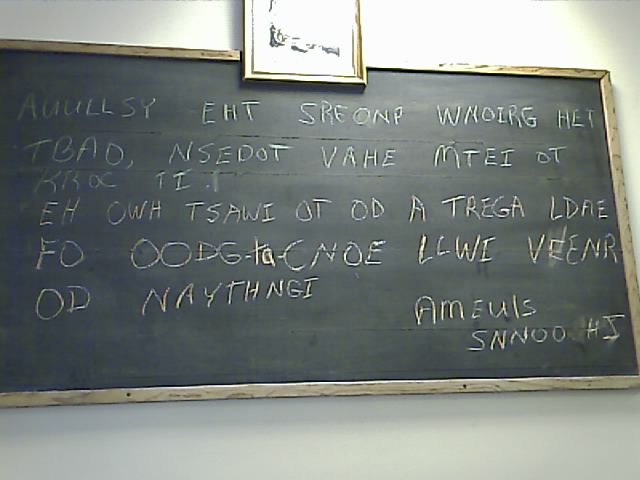 AUULLSY EHT SREONP WNOIRG HET
TBAO, NSEDOT VAHE MTEI OT
KROC TI.
EH OWH TSAWI OT OD A TREGA LDAE
FO OODG-ta-CNOE LLWI VEENR
OD NAYTHNGI
AMEUlS
SNNOO HJ